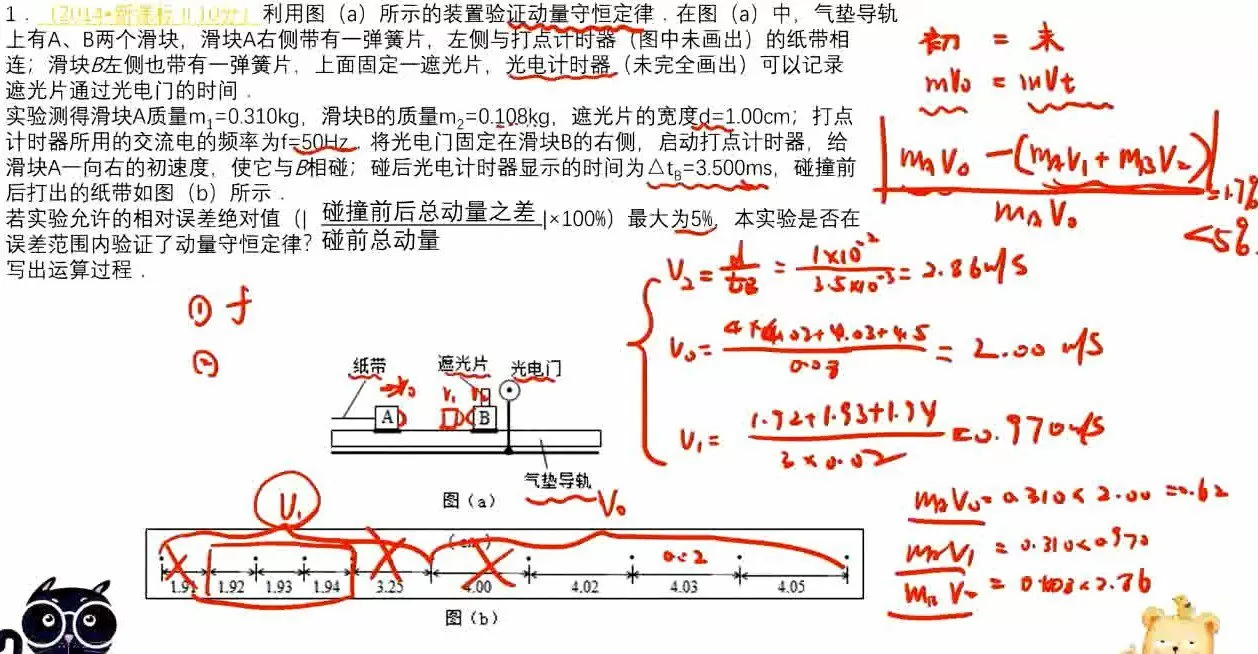 1． (2014•新课标Ⅱ) 10分 利用图（a）所示的装置验证动量守恒定律．在图（a）中，气垫导轨
上有A、B两个滑块，滑块A右侧带有一弹簧片，左侧与打点计时器（图中未画出）的纸带相
连；滑块B左侧也带有一弹簧片，上面固定一遮光片，光电计时器（未完全画出）可以记录
遮光片通过光电门的时间．
实验测得滑块A质量m₁=0.310kg，滑块B的质量m₂=0.108kg，遮光片的宽度d=1.00cm；打点
计时器所用的交流电的频率为f=50Hz．将光电门固定在滑块B的右侧，启动打点计时器，给
滑块A一向右的初速度，使它与B相碰；碰后光电计时器显示的时间为△t_B=3.500ms，碰撞前
后打出的纸带如图（b）所示．
若实验允许的相对误差绝对值（| 碰撞前后总动量之差 |×100%）最大为5%，本实验是否在
碰前总动量
误差范围内验证了动量守恒定律？
写出运算过程．
初 = 末
mV₀ = mVt
|m_A V₀ -(m_A V₁ + m_B V₂)|
m_A V₀
=1.7%
<5%
V₂ = d/t_B = 1×10⁻²/3.5×10⁻³ = 2.86m/s
= 2.00 m/s
V₁ = 1.92+1.93+1.94/3×0.02 = 0.970m/s
① f
②
纸带 遮光片 光电门
V₀ V₁
A B
气垫导轨
图（a）
V₁ V₀
(cm)
0.02
1.91 1.92 1.93 1.94 3.25 4.00 4.02 4.03 4.05
图（b）
m_A V₀ = 0.310×2.00 =0.62
m_A V₁ = 0.310×0.970
m_B V₂ = 0.108×2.86